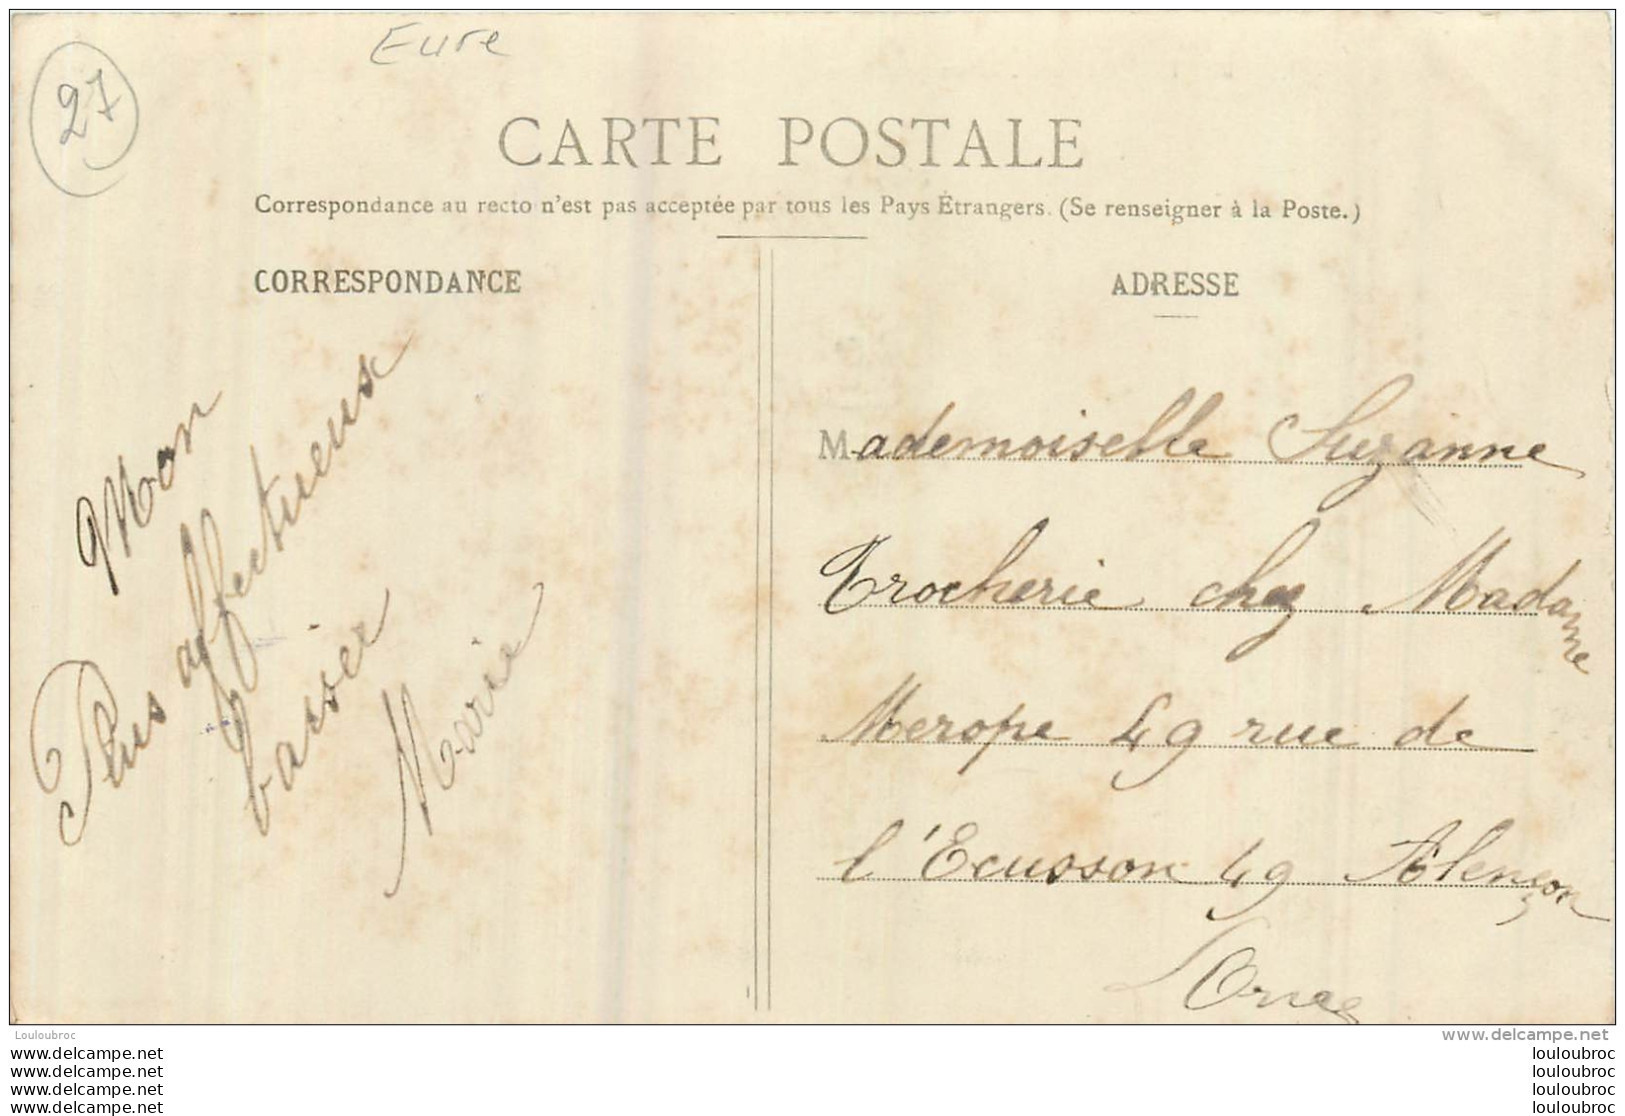 Eure
27
CARTE POSTALE
Correspondance au recto n'est pas acceptée par tous les Pays Étrangers. (Se renseigner à la Poste.)
CORRESPONDANCE
Mon
Plus affectueux
baiser
Marie
ADRESSE
Mademoiselle Suzanne
Trocherie chez Madame
Merope 49 rue de
l'Ecusson 49 Alençon
Orne
Louloubroc
www.delcampe.net
www.delcampe.net
www.delcampe.net
www.delcampe.net
www.delcampe.net
louloubroc
louloubroc
louloubroc
louloubroc